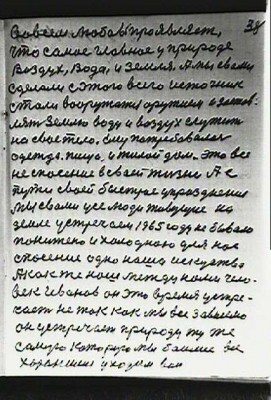 38
Совсем любовь проявляет,
что самое главное у природе
воздух, вода, и земля. А мы с вами
сделали с этого всего источник
стали вооружати оружием заставлять
землю воду и воздух служить
на свое тело. Ему потребовался
одежда. пища, и жилой дом. Это все
не спасение в своей жизни А к
пути своей быстрое упразднения
Мы с вами усе люди живущие на
земле устречаем 1965 году не бывало
понижено и холодною для нас
спасение одно наша искуства
А как же наш между нами человек
Иванов он это время устречает
не так как мы все завсегда
он устречает природу ту же
самую которую мы боимся ее
хороним уходим